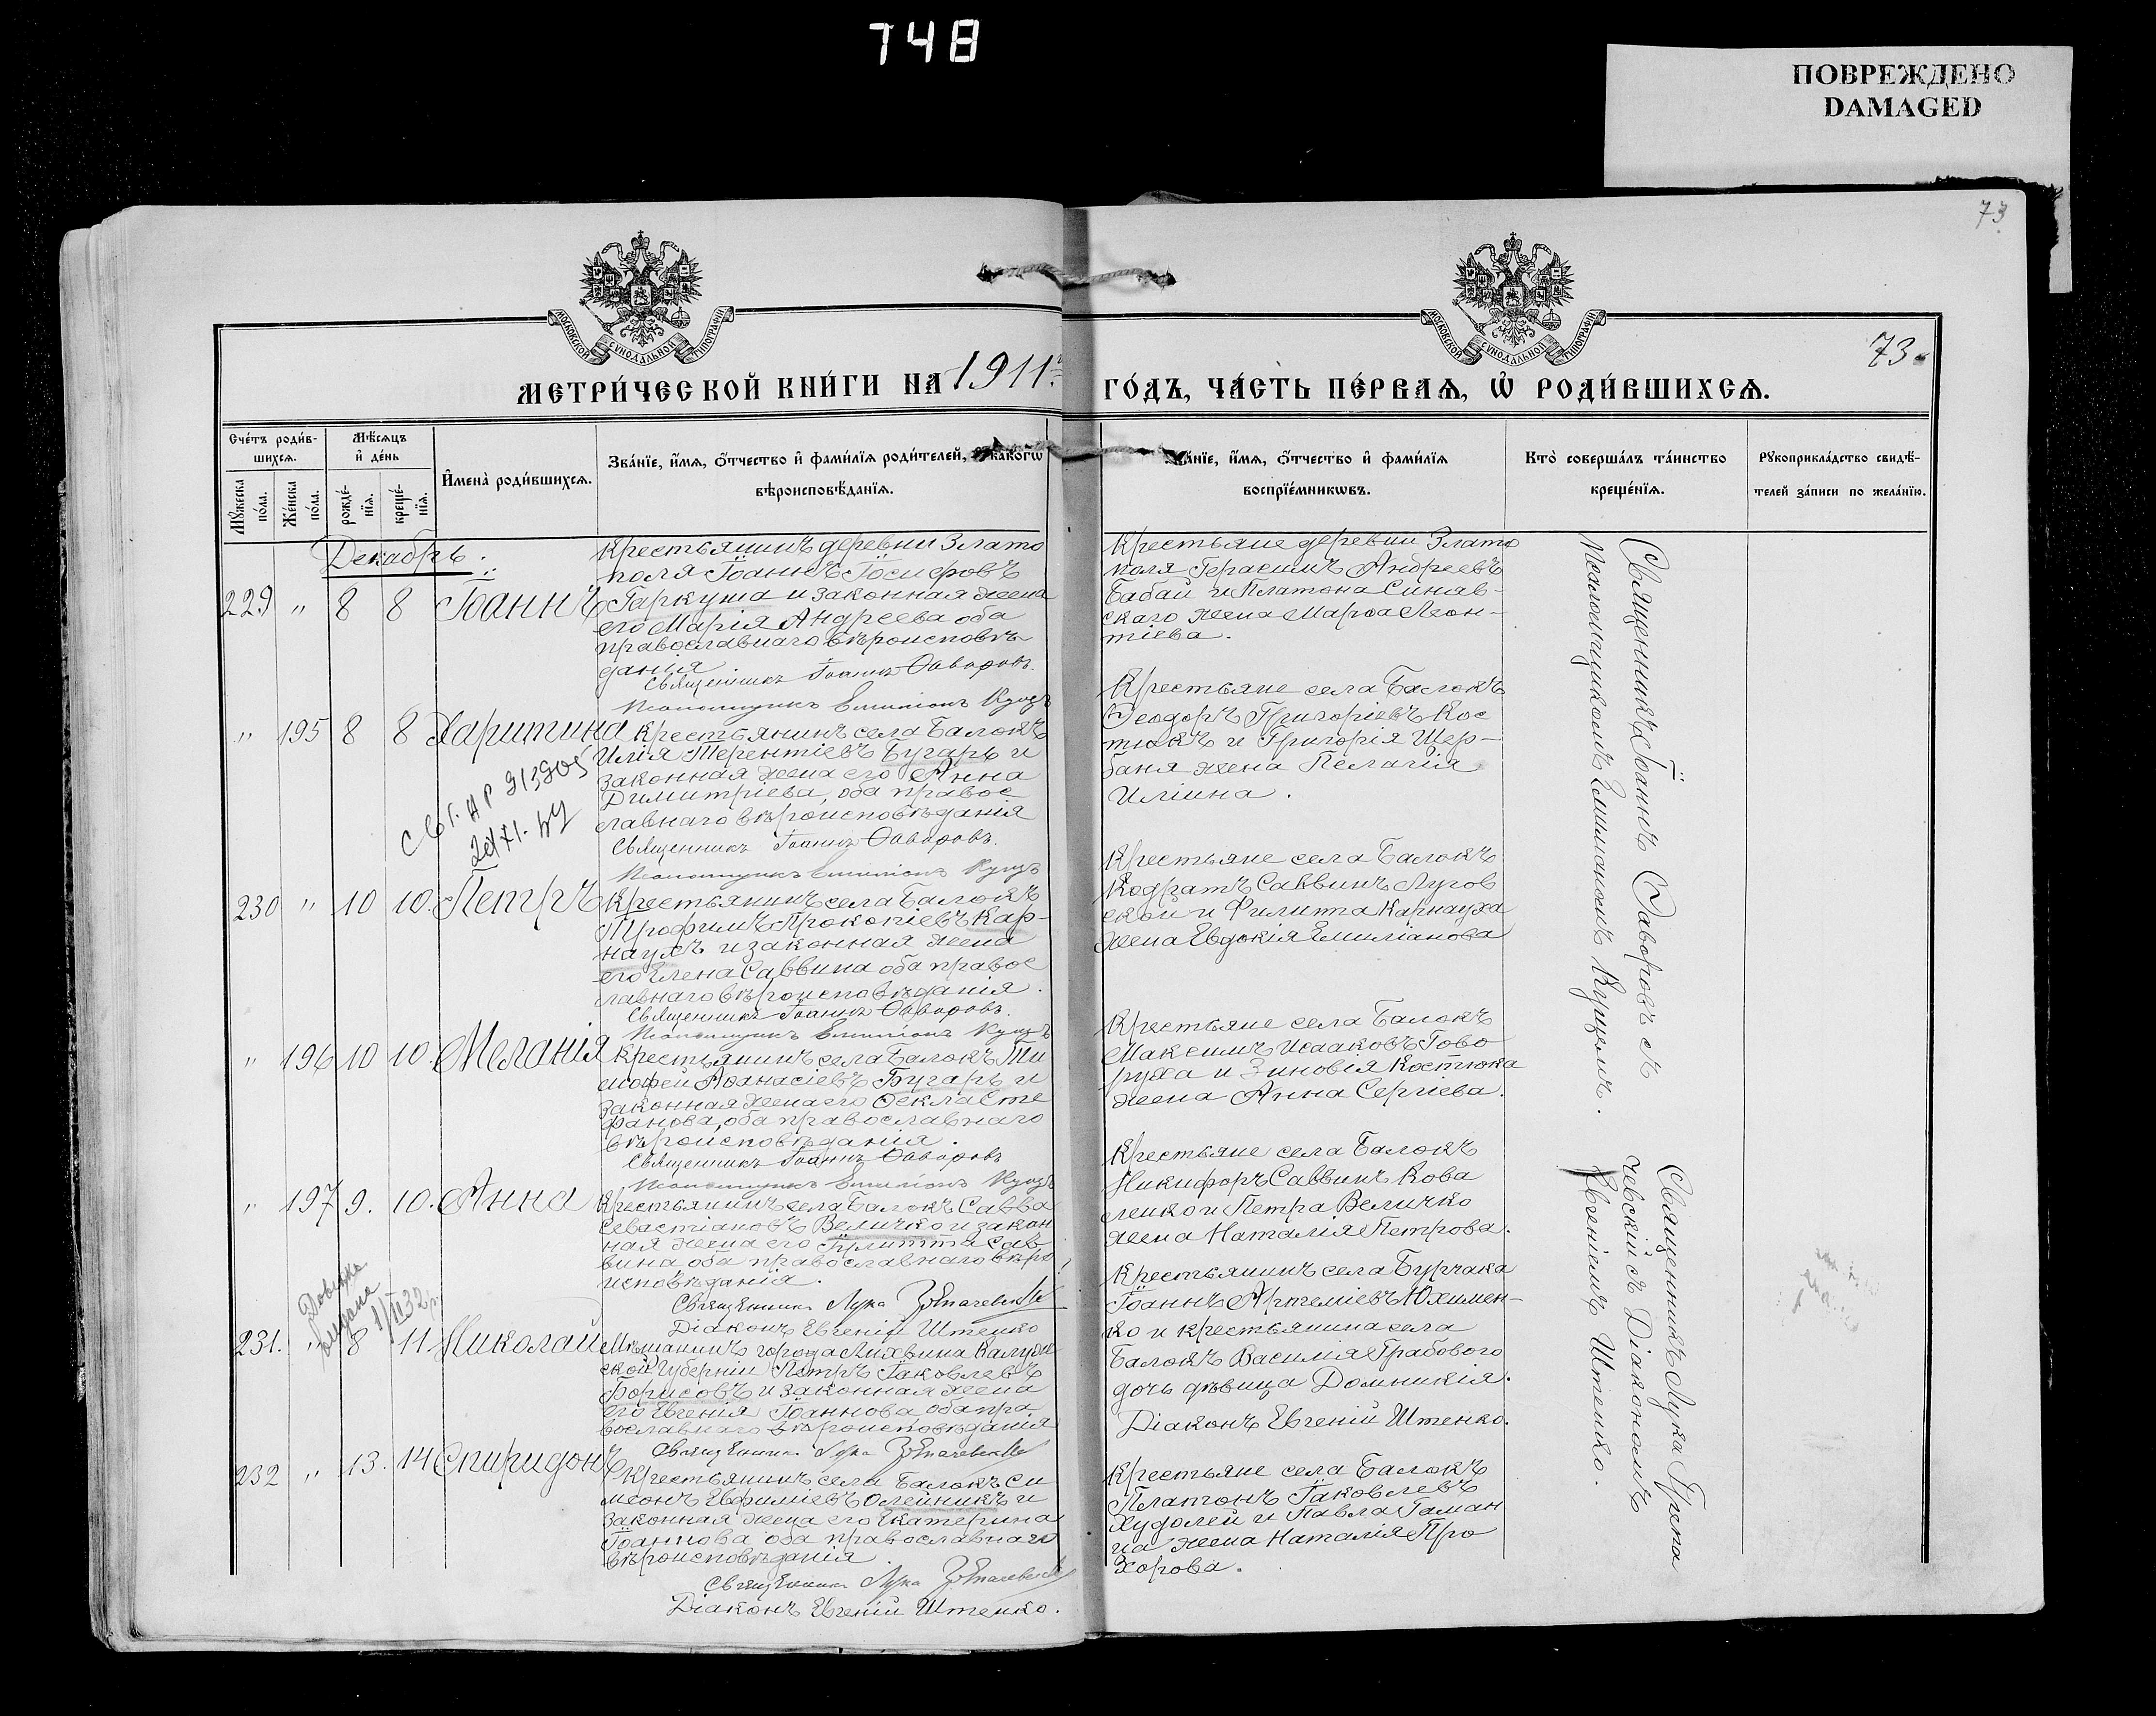 748
ПОВРЕЖДЕНО
DAMAGED
73
МОСКОВСКОЙ СѴНОДАЛЬНОЙ ТИПОГРАФІИ
МОСКОВСКОЙ СѴНОДАЛЬНОЙ ТИПОГРАФІИ
73
МЕТРИ́ЧЕСКОЙ КНИ́ГИ НА 1911 г.
ГО́ДЪ, ЧА́СТЬ ПЕ́РВАѦ, Ѡ҆ РОДИ́ВШИХСѦ.
Сче́тъ роди́в-
шихсѧ.
Мѣ́сѧцъ
и҆ де́нь
Мꙋ́жеска по́ла.
Же́нска по́ла.
рожде́-нїѧ.
креще́-нїѧ.
И҆мена̀ роди́вшихсѧ.
Зва́нїе, и҆́мѧ, ѻ҆́тчество и҆ фами́лїѧ роди́телей, и҆ како́гѡ
вѣроисповѣ́данїѧ.
Зва́нїе, и҆́мѧ, ѻ҆́тчество и҆ фами́лїѧ
воспрїе́мникѡвъ.
Кто̀ соверша́лъ та́инство
креще́нїѧ.
Рꙋкоприкла́дство свидѣ́-
телей за́писи по жела́нїю.
Декабрь.
229 " 8 8 Іоаннъ
Крестьянинъ деревни Злато
поля Іоаннъ Іосифовъ
Гаркуша и законная жена
его Марія Андреева оба
православнаго вѣроисповѣ
данія
Священникъ Іоаннъ Ѳаворовъ.
Псаломщикъ Емиліанъ Куцъ
Крестьяне деревни Злато
поля Герасимъ Андреевъ
Бабай и Платона Синяв-
скаго жена Марѳа Леон-
тіева.
" 195 8 8 Харитина
Крестьянинъ села Балокъ
Илія Терентіевъ Бугарь и
законная жена его Анна
Димитріева, оба правос
лавнаго вѣроисповѣданія
Священникъ Іоаннъ Ѳаворовъ.
Псаломщикъ Емиліанъ Куцъ
Крестьяне села Балокъ
Ѳеодоръ Григоріевъ Кос
тюкъ и Григорія Щер-
баня жена Пелагія
Иліина.
230 " 10 10. Петръ
Крестьянинъ села Балокъ
Трофимъ Прокопіевъ Кар-
наухъ и законная жена
его Елена Саввина оба правос
лавнаго вѣроисповѣданія.
Священникъ Іоаннъ Ѳаворовъ.
Псаломщикъ Емиліанъ Куцъ
Крестьяне села Балокъ
Кодратъ Саввинъ Лугов
ской и Филиппа Карнауха
жена Евдокія Емиліанова
" 196 10 10. Меланія
Крестьянинъ села Балокъ Ти
моѳей Аѳанасіевъ Бугарь и
законная жена его Ѳекла Сте
фанова, оба православнаго
вѣроисповѣданія.
Священникъ Іоаннъ Ѳаворовъ
Псаломщикъ Емиліанъ Куцъ
Крестьяне села Балокъ
Максимъ Исааковъ Гово
руха и Зиновія Костюка
жена Анна Сергіева.
" 197 9. 10. Анна
Крестьянинъ села Балокъ Савва
Севастіановъ Величко и закон
ная жена его Іулитта Сав
вина оба православнаго вѣро
исповѣданія.
Священникъ Лука
Діаконъ Евгеній Штенко
Крестьяне села Балокъ
Никифоръ Саввинъ Кова
ленко и Петра Величко
жена Наталія Петрова.
Довідка
видана
1/III 32 р.
231. " 8 11 Николай
Мѣщанинъ города Лихвина Калуж
ской губерніи Петръ Іаковлевъ
Борисовъ и законная жена
его Евгенія Іоаннова оба пра
вославнаго вѣроисповѣданія
Священникъ Лука
Крестьянинъ села Бурчака
Іоаннъ Артеміевъ Юхимен-
ко и крестьянина села
Балокъ Василія Грабового
дочь дѣвица Домникія.
Діаконъ Евгеній Штенко.
232 " 13. 14 Спиридонъ
Крестьянинъ села Балокъ Си
меонъ Евфиміевъ Олейникъ и
законная жена его Екатерина
Іоаннова оба православнаго
вѣроисповѣданія
Священникъ Лука
Діаконъ Евгеній Штенко.
Крестьяне села Балокъ
Платонъ Іаковлевъ
Худолей и Павла Гаман
на жена Наталія Про
хорова.
Священникъ Іоаннъ Ѳаворовъ съ
Псаломщикомъ Емиліаномъ Куцемъ.
Священникъ Лука Грета
чевскій съ Діакономъ
Евгеніемъ Штенко.